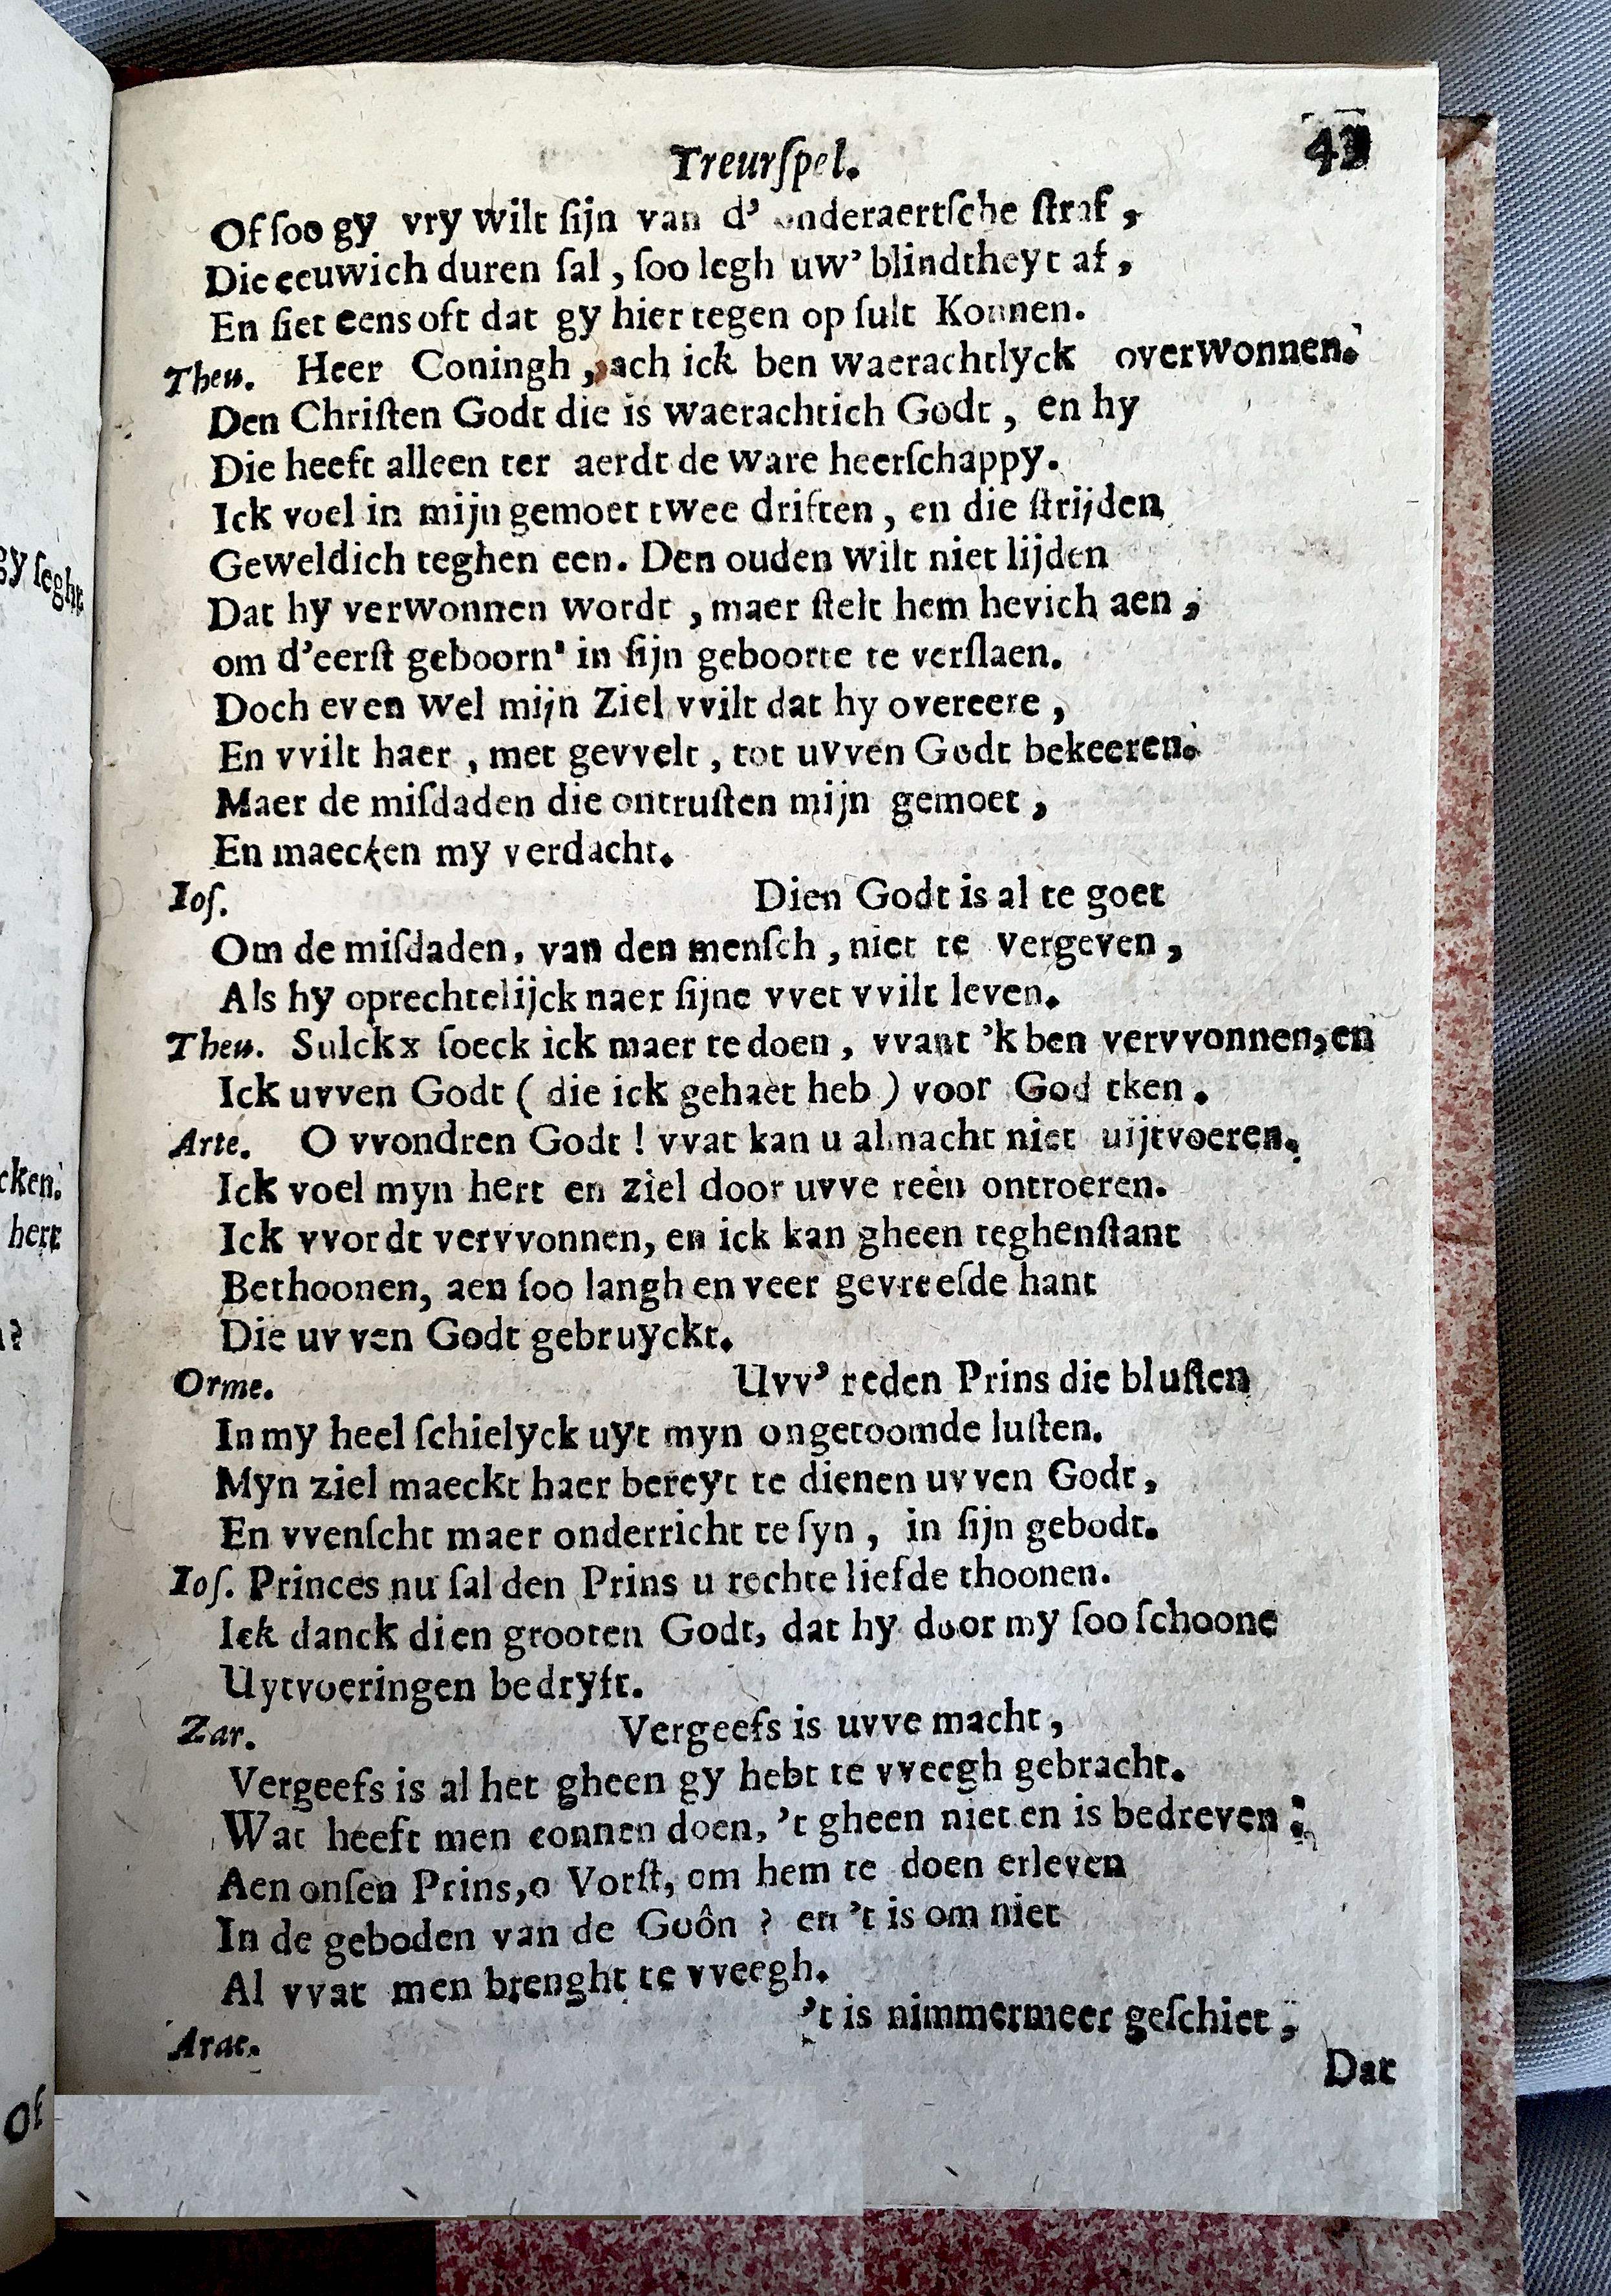 Treurſpel.
Of ſoo gy vry wilt ſijn van d' onderaertſche ſtraf,
Die eeuwich duren ſal, ſoo legh uw' blindtheyt af,
En ſiet eens oft dat gy hier tegen op ſult Konnen.
Theu. Heer Coningh, ach ick ben waerachtlyck overwonnen.
Den Chriſten Godt die is waerachtich Godt, en hy
Die heeft alleen ter aerdt de ware heerſchappy.
Ick voel in mijn gemoet twee driften, en die ſtrijden
Geweldich teghen een. Den ouden wilt niet lijden
Dat hy verwonnen wordt, maer ſtelt hem hevich aen,
om d'eerſt geboorn' in ſijn geboorte te verſlaen.
Doch even wel mijn Ziel vvilt dat hy overeere,
En vvilt haer, met gevvelt, tot uvven Godt bekeeren.
Maer de miſdaden die ontruſten mijn gemoet,
En maecken my verdacht.
Ioſ. Dien Godt is al te goet
Om de miſdaden, van den menſch, niet te vergeven,
Als hy oprechtelijck naer ſijne vvet vvilt leven.
Theu. Sulckx ſoeck ick maer te doen, vvant 'k ben vervvonnen, en
Ick uvven Godt ( die ick gehaet heb ) voor God cken.
Arte. O vvondren Godt! vvat kan u almacht niet uijtvoeren.
Ick voel myn hert en ziel door uvve reên ontroeren.
Ick vvordt vervvonnen, en ick kan gheen teghenſtant
Bethoonen, aen ſoo langh en veer gevreeſde hant
Die uvven Godt gebruyckt.
Orme. Uvv' reden Prins die bluſten
In my heel ſchielyck uyt myn ongetoomde luſten.
Myn ziel maeckt haer bereyt te dienen uvven Godt,
En vvenſcht maer onderricht te ſyn, in ſijn gebodt.
Ioſ. Princes nu ſal den Prins u rechte liefde thoonen.
Ick danck dien grooten Godt, dat hy door my ſoo ſchoone
Uytvoeringen bedryft.
Zar. Vergeefs is uvve macht,
Vergeefs is al het gheen gy hebt te vveegh gebracht.
Wat heeft men connen doen, 't gheen niet en is bedreven:
Aen onſen Prins, o Vorſt, om hem te doen erleven
In de geboden van de Goôn? en 't is om niet
Al vvat men brenght te vveegh.
Arac. 't is nimmermeer geſchiet,
Dat
gy ſeght
cken.
hert
?
Of